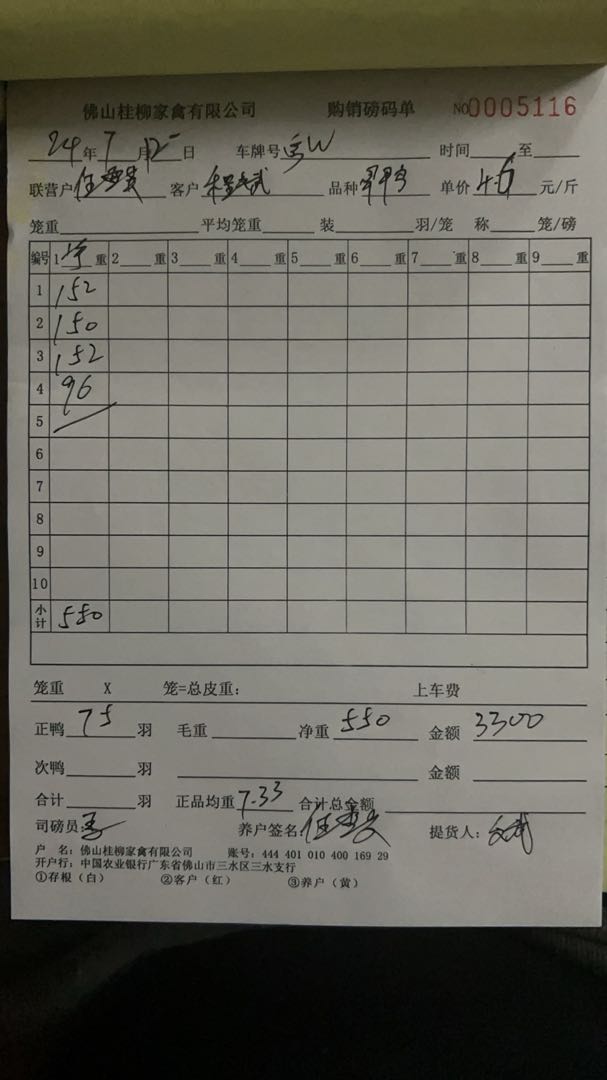 佛山桂柳家禽有限公司 购销磅码单 NO 0005116
24年7月12日 车牌号 W 时间 至
联营户 任 客户 武 品种 单价 元/斤
笼重 平均笼重 装 羽/笼 称 笼/磅
编号 1净重 2 重 3 重 4 重 5 重 6 重 7 重 8 重 9 重
1 152
2 150
3 152
4 96
5
6
7
8
9
10
小计 550
笼重 X 笼=总皮重: 上车费
正鸭 75 羽 毛重 净重 550 金额 3300
次鸭 羽 金额
合计 羽 正品均重 7.33 合计总金额
司磅员: 养户签名 任 提货人: 武
户 名: 佛山桂柳家禽有限公司 账号: 444 401 010 400 169 29
开户行: 中国农业银行广东省佛山市三水区三水支行
①存根（白） ②客户（红） ③养户（黄）